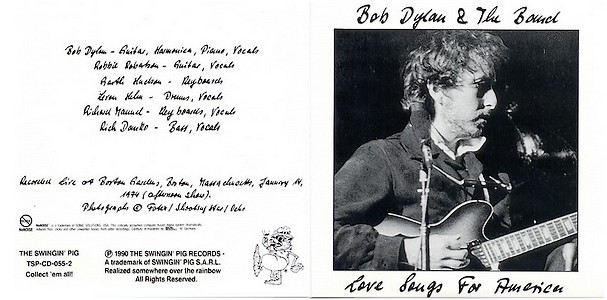 Bob Dylan - Guitar, Harmonica, Piano, Vocals
Robbie Robertson - Guitar, Vocals
Garth Hudson - Keyboards
Levon Helm - Drums, Vocals
Richard Manuel - Keyboards, Vocals
Rick Danko - Bass, Vocals
Recorded Live at Boston Gardens, Boston, Massachusetts, January 14,
1974 (afternoon show).
Photographs © Foter/Shooting Star/Debs
NoNOISE
THE SWINGIN' PIG
TSP-CD-055-2
Collect 'em all!
℗ 1990 THE SWINGIN' PIG RECORDS -
A trademark of SWINGIN' PIG S.A.R.L.
Realized somewhere over the rainbow
All Rights Reserved.
Bob Dylan & The Band
Love Songs For America